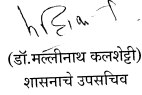 (डॉ.मल्लीनाथ कलशेट्टी)
शासनाचे उपसचिव